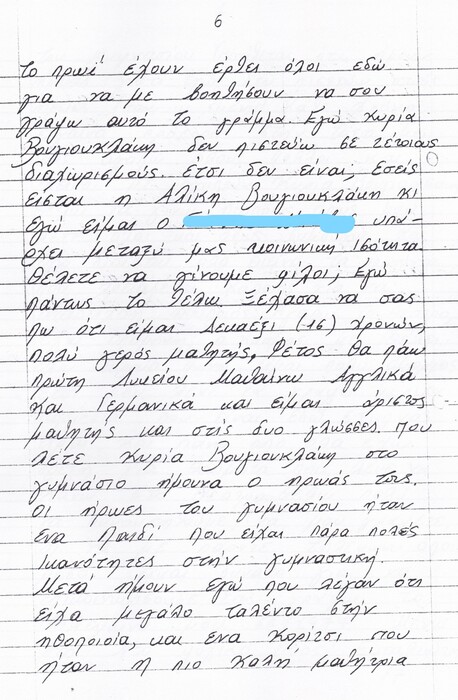 6
το πρωί έχουν έρθει όλοι εδώ
για να με βοηθήσουν να σου
γράψω αυτό το γράμμα. Εγώ κυρία
Βουγιουκλάκη δεν πιστεύω σε τέτοιους
διαχωρισμούς. έτσι δεν είναι; Εσείς
είσται η Αλίκη Βουγιουκλάκη κι
εγώ είμαι ο υπά-
ρχει μεταξύ μας κοινωνική ισότητα
Θέλετε να γίνουμε φίλοι; Εγώ
πάντως το θέλω. Ξέχασα να σας
πω ότι είμαι Δεκαέξι (16) χρονών,
πολύ γερός μαθητής, Φέτος θα πάω
πρώτη Λυκείου Μαθαίνω Αγγλικά
και Γερμανικά και είμαι άριστος
μαθητής και στις δυο γλώσσες. που
λέτε κυρία Βουγιουκλάκη στο
γυμνάσιο ήμουνα ο ηρωάς τους.
οι ήρωες του γυμνασίου ήταν
ένα παιδί που είχαι πάρα πολές
ικανότητες στήν γυμναστική.
Μετά ήμουν εγώ που λέγαν ότι
είχα μεγάλο ταλέντο στήν
ηθοποιοία, και ένα κορίτσι που
ήταν η πιο καλή μαθήτρια